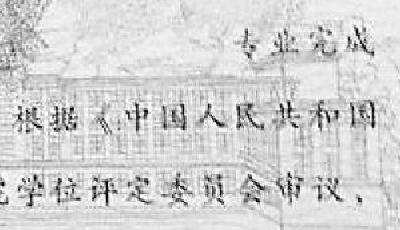 专业完成
根据《中国人民共和国
学位评定委员会审议，